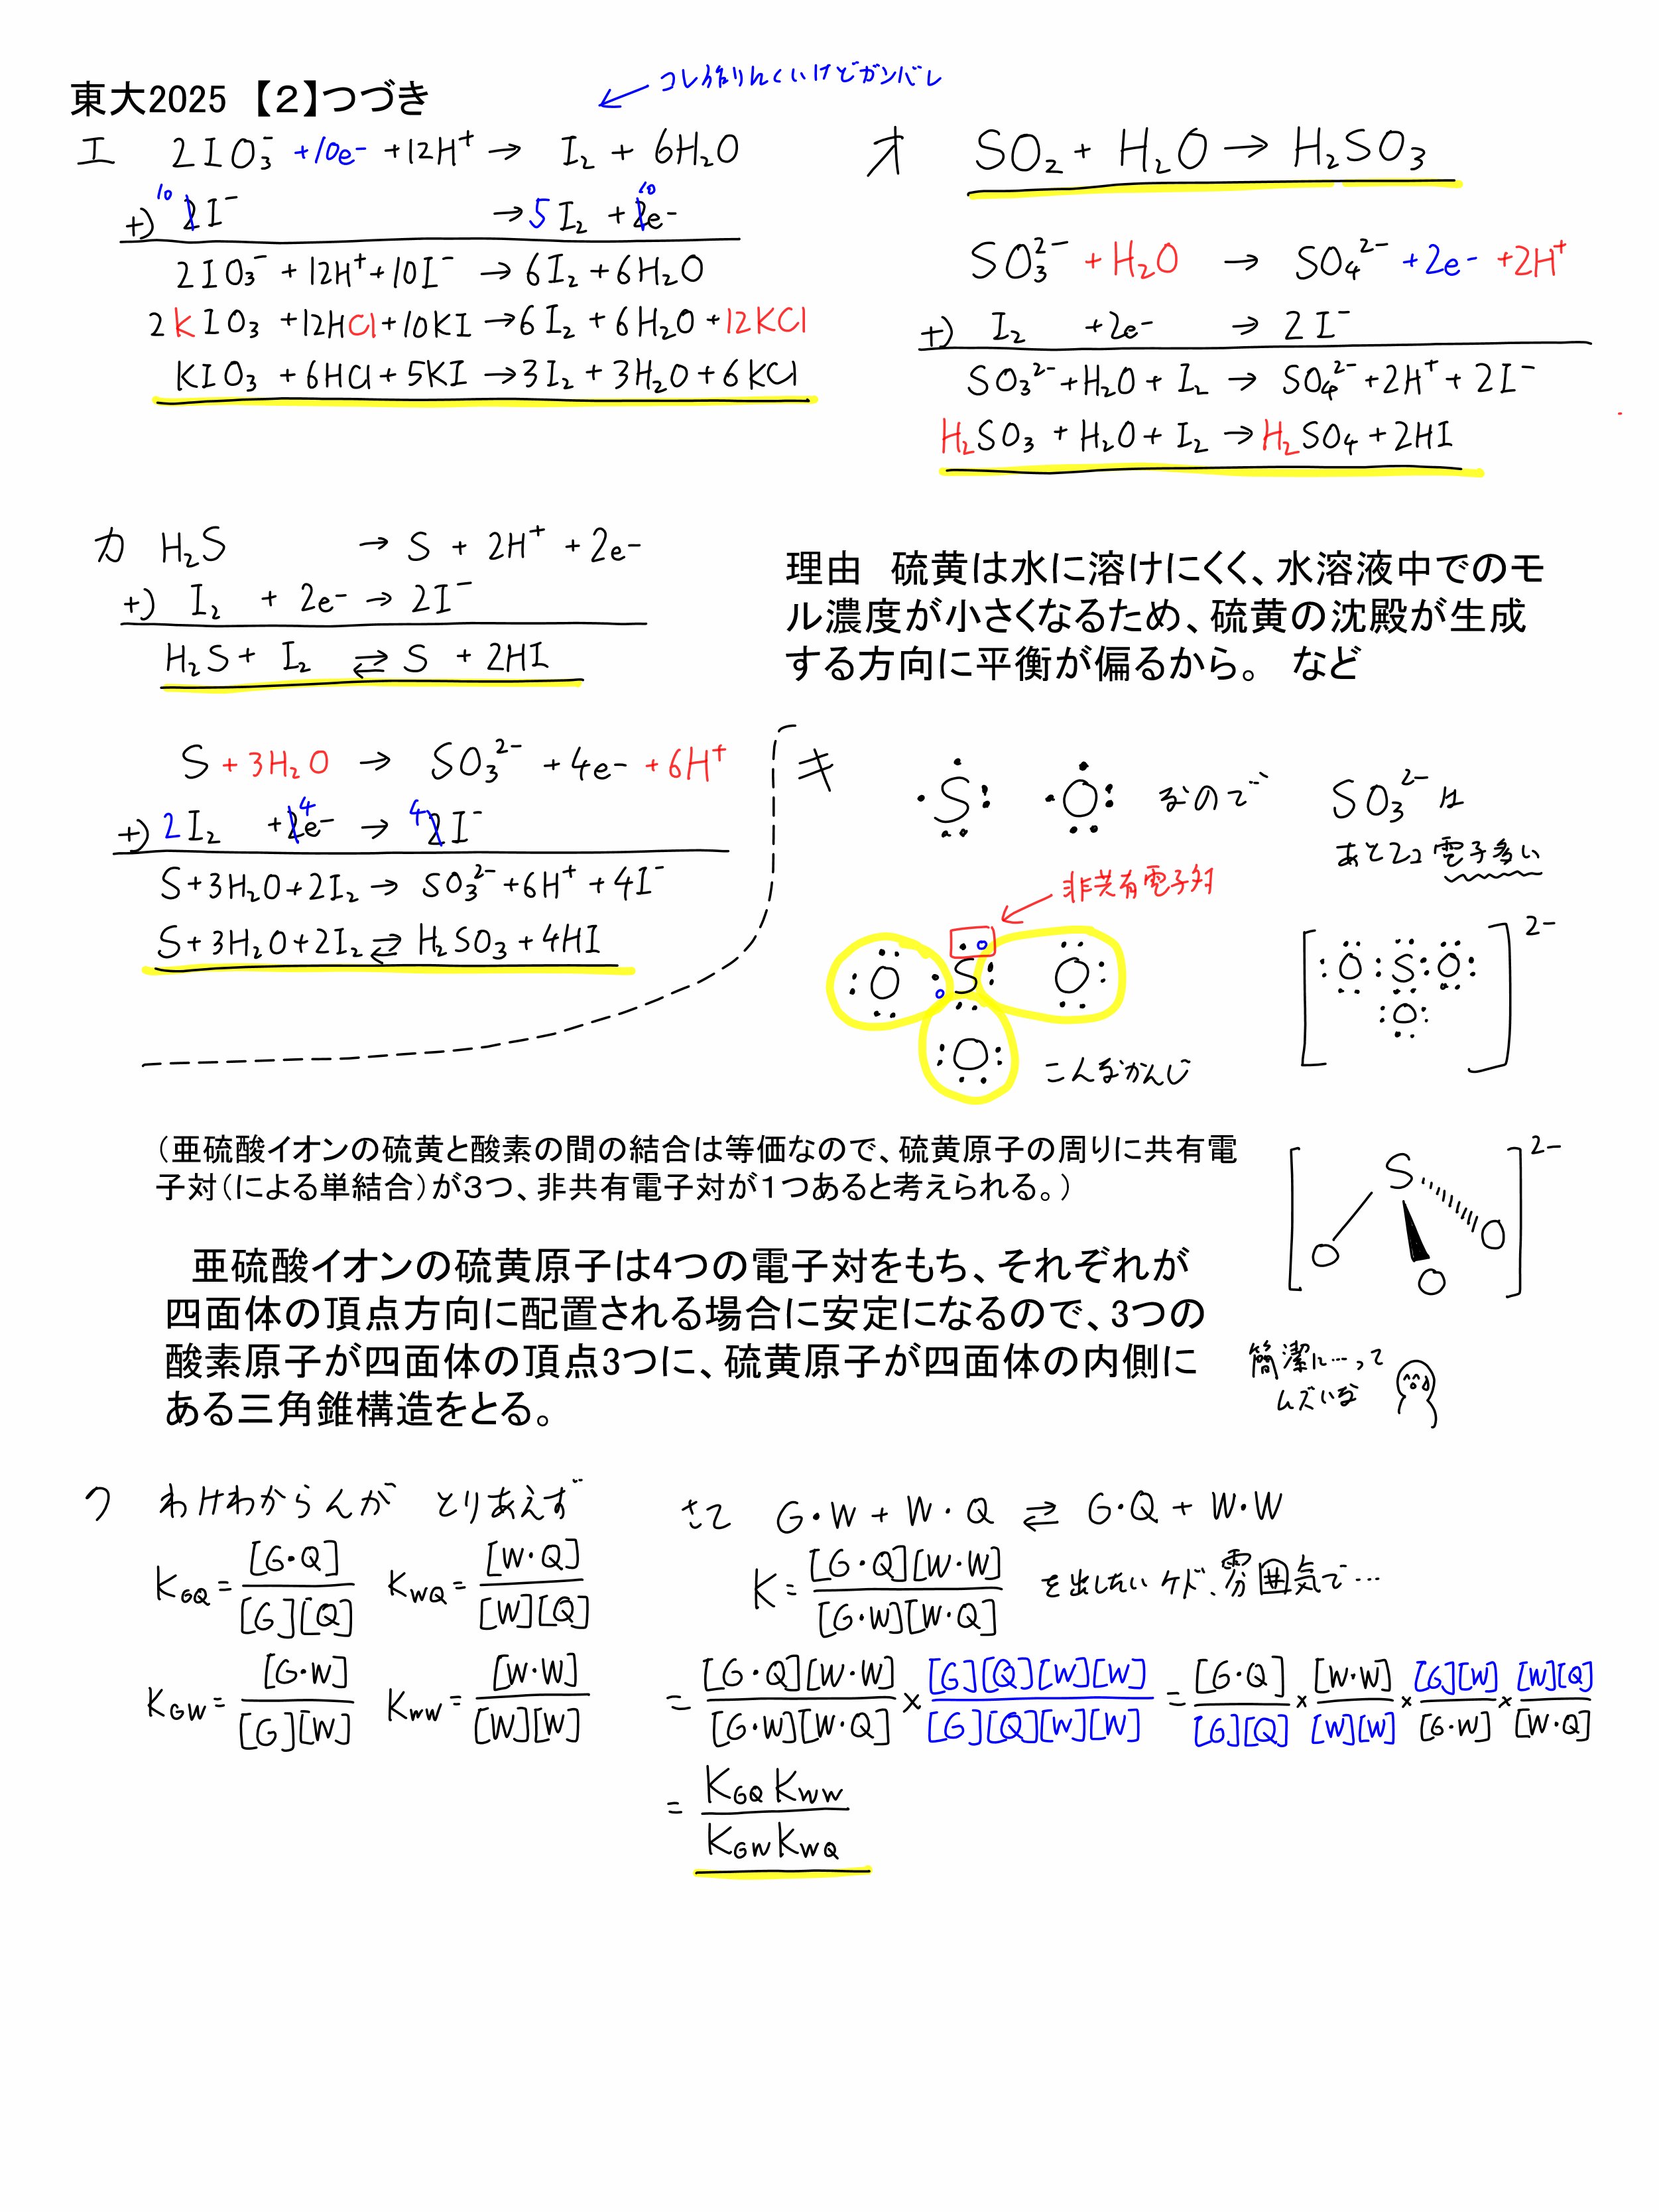 東大2025 【２】つづき
コレ作りにくいけどガンバレ
エ 2IO₃⁻ +10e⁻ +12H⁺ → I₂ + 6H₂O
+) 10 2I⁻ → 5I₂ + 10 2e⁻
2IO₃⁻ + 12H⁺ + 10I⁻ → 6I₂ + 6H₂O
2KIO₃ + 12HCl + 10KI → 6I₂ + 6H₂O + 12KCl
KIO₃ + 6HCl + 5KI → 3I₂ + 3H₂O + 6KCl
オ SO₂ + H₂O → H₂SO₃
SO₃²⁻ + H₂O → SO₄²⁻ + 2e⁻ + 2H⁺
+) I₂ + 2e⁻ → 2I⁻
SO₃²⁻ + H₂O + I₂ → SO₄²⁻ + 2H⁺ + 2I⁻
H₂SO₃ + H₂O + I₂ → H₂SO₄ + 2HI
カ H₂S → S + 2H⁺ + 2e⁻
+) I₂ + 2e⁻ → 2I⁻
H₂S + I₂ ⇄ S + 2HI
理由 硫黄は水に溶けにくく、水溶液中でのモ
ル濃度が小さくなるため、硫黄の沈殿が生成
する方向に平衡が偏るから。 など
S + 3H₂O → SO₃²⁻ + 4e⁻ + 6H⁺
+) 2I₂ + 4 2e⁻ → 4 2I⁻
S + 3H₂O + 2I₂ → SO₃²⁻ + 6H⁺ + 4I⁻
S + 3H₂O + 2I₂ ⇄ H₂SO₃ + 4HI
キ S O なので SO₃²⁻は
あと2コ電子多い
非共有電子対
O S O
O
こんなかんじ
[O S O
O]²⁻
（亜硫酸イオンの硫黄と酸素の間の結合は等価なので、硫黄原子の周りに共有電
子対（による単結合）が３つ、非共有電子対が１つあると考えられる。）
[S
O O O]²⁻
亜硫酸イオンの硫黄原子は4つの電子対をもち、それぞれが
四面体の頂点方向に配置される場合に安定になるので、3つの
酸素原子が四面体の頂点3つに、硫黄原子が四面体の内側に
ある三角錐構造をとる。
簡潔に…って
ムズいな
ク わけわからんが とりあえず
K_GQ = [G・Q]/[G][Q] K_WQ = [W・Q]/[W][Q]
K_GW = [G・W]/[G][W] K_WW = [W・W]/[W][W]
さて G・W + W・Q ⇄ G・Q + W・W
K = [G・Q][W・W]/[G・W][W・Q] を出したいケド、雰囲気で…
= [G・Q][W・W]/[G・W][W・Q] × [G][Q][W][W]/[G][Q][W][W] = [G・Q]/[G][Q] × [W・W]/[W][W] × [G][W]/[G・W] × [W][Q]/[W・Q]
= K_GQ K_WW/K_GW K_WQ